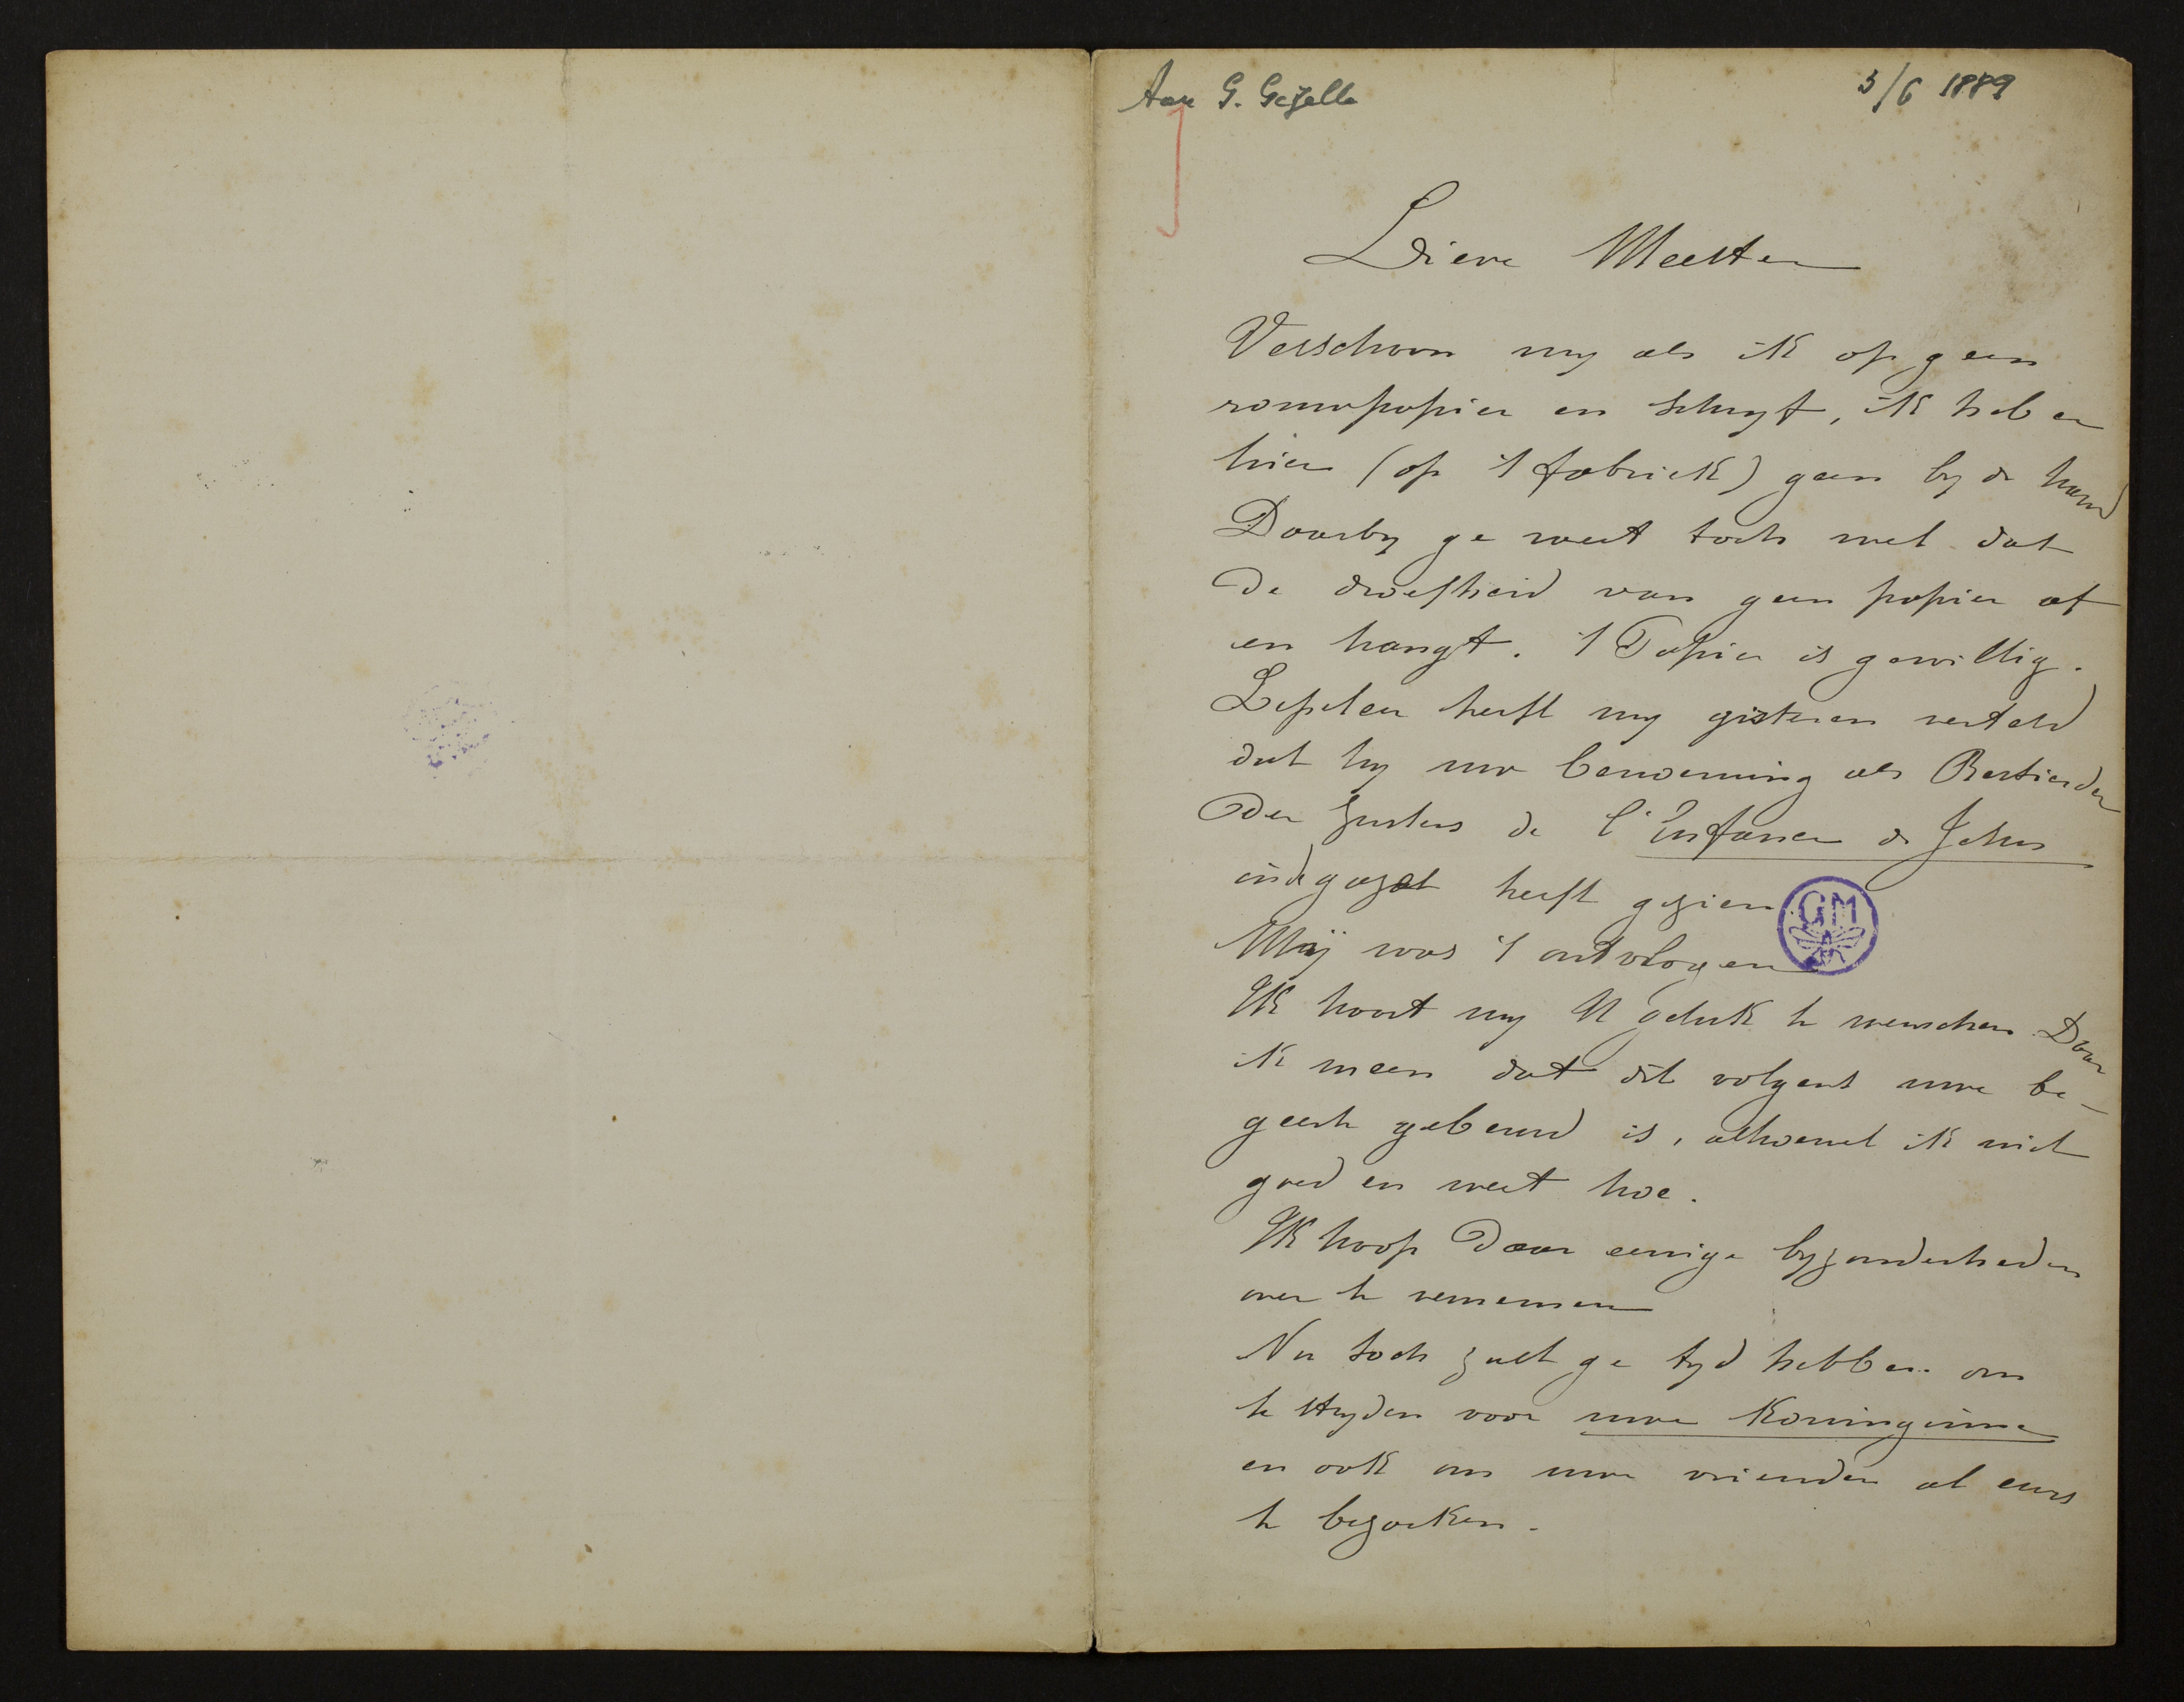 Aan G. Gezelle
5/6 1889
Lieve Meester
Verschoon my als ik op geen
rouwpapier en schryf, ik heb er
hier (op 't fabriek) geen by de hand
Daarby ge weet toch wel dat
de droefheid van geen papier af
en hangt. 't Papier is gewillig.
heeft my gisteren verteld
dat hy uw benoeming als Bestierder
der Zusters de l'Enfance de Jesus
in de gazet heeft gezien.
Mij was 't ontvlogen
Ik haast my U geluk te wenschen Daar
ik meen dat dit volgens uwe be-
geerte gebeurd is, alhoewel ik niet
goed en weet hoe.
Ik hoop daar eenige byzonderheden
over te vernemen
Nu toch zult ge tyd hebben om
te stryden voor uwe Koninginne
en ook om uwe vrienden al eens
te bezoeken.
GM